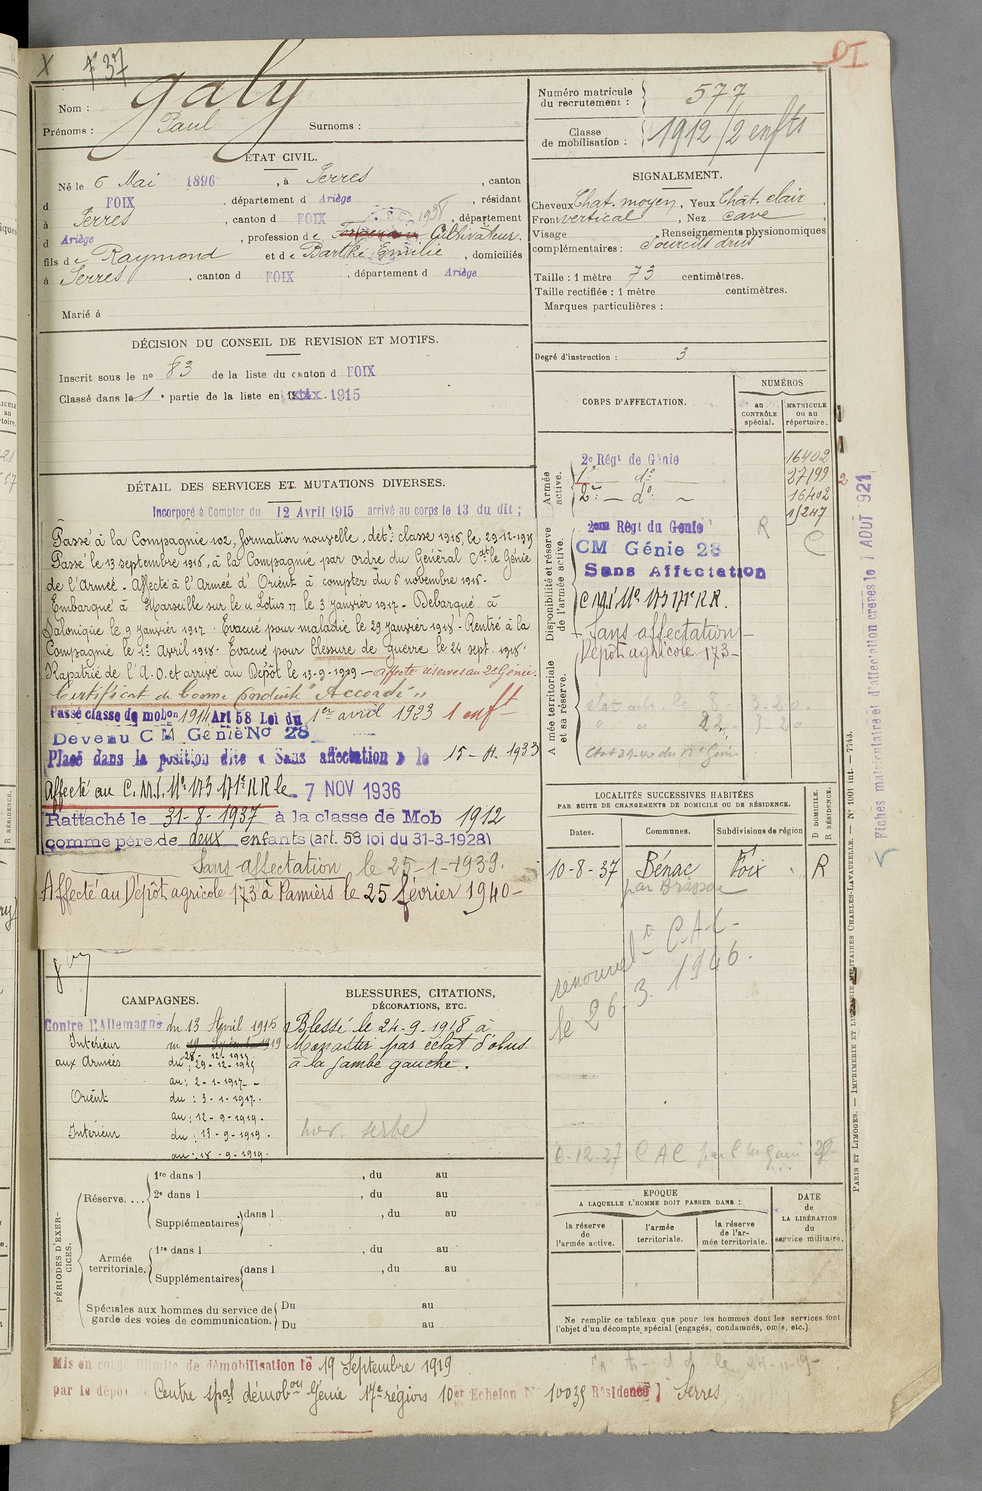 X
f° 37
DI
Nom : Galy
Prénoms : Paul Surnoms :
ÉTAT CIVIL.
Né le 6 Mai 1896, à Serres, canton
d FOIX, département d Ariège, résidant
à Serres, canton d FOIX 1938, département
d Ariège, profession de Cultivateur.
fils de Raymond et de Barthe Emilie, domiciliés
à Serres, canton d FOIX, département d Ariège
Marié à
DÉCISION DU CONSEIL DE REVISION ET MOTIFS.
Inscrit sous le no 83 de la liste du canton d FOIX
Classé dans la 1e partie de la liste en 1915
DÉTAIL DES SERVICES ET MUTATIONS DIVERSES.
Incorporé à Compter du 12 Avril 1915 arrivé au corps le 13 du dit ;
Passé à la Compagnie 102, formation nouvelle, dét. classe 1916, le 29-12-1915
Passé le 13 septembre 1916, à la Compagnie par ordre du Général Ct le Génie
de l'Armée. Affecté à l'Armée d'Orient à compter du 5 novembre 1916.
Embarqué à Marseille sur le "Lotus" le 3 janvier 1917 - Debarqué à
Salonique le 9 janvier 1917. Evacué pour maladie le 29 janvier 1918. Rentré à la
Compagnie le 1er Avril 1918. Evacué pour blessure de guerre le 24 sept. 1918.
Rapatrié de l'A.O. et arrivé au Dépôt le 13-9-1919 - affecté réserves au 2e Génie.
Certificat de bonne Conduite "Accordé"
Passé classe de mobon 1914 Art 58 Loi du 1er avril 1923 1 enft
Devenu C M Génie No 28
Placé dans la position dite « Sans affectation » le 15-11-1933
Affecté au C.M.I. No 173 171e RR le 7 NOV 1936
Rattaché le 31-8-1937 à la classe de Mob 1912
comme père de deux enfants (art. 58 loi du 31-3-1928)
Sans affectation le 25-1-1939.
Affecté au Dépôt agricole 173 à Pamiers le 25 février 1940-
CAMPAGNES.
Contre l'Allemagne du 13 Avril 1915
Intérieur
28-12-1915
aux Armées du : 29-12-1915
au : 2-1-1917 -
Orient du : 3-1-1917.
au : 12-9-1919.
Intérieur du : 13-9-1919.
au : 18-9-1919.
BLESSURES, CITATIONS,
DÉCORATIONS, ETC.
Blessé le 24-9-1918 à
Monastir par éclat d'obus
à la jambe gauche.
PÉRIODES D'EXERCICES.
Réserve....
1re dans l , du au
2e dans l , du au
Supplémentaires dans l , du au
Armée territoriale.
1re dans l , du au
Supplémentaires dans l , du au
Spéciales aux hommes du service de garde des voies de communication.
Du au
Du au
Mis en congé illimité de démobilisation le 19 Septembre 1919
par le dépôt Centre spal démobon Génie 17e région 10e Echelon No 10039 Résidence Serres
Numéro matricule du recrutement : 577
Classe de mobilisation : 1912 / 2 enfts
SIGNALEMENT.
Cheveux Chat. moyen, Yeux Chât. clair,
Front vertical, Nez cave,
Visage Renseignements physionomiques
complémentaires : Sourcils drus
Taille : 1 mètre 73 centimètres.
Taille rectifiée : 1 mètre centimètres.
Marques particulières :
Degré d'instruction : 3
CORPS D'AFFECTATION.
NUMÉROS
AU CONTRÔLE spécial.
MATRICULE ou au répertoire.
Armée active.
2e Régt de Génie 16402
1° d° 27199
2° - d° 16402
Disponibilité et réserve de l'armée active.
2ème Régt du Génie R
CM Génie 28 C
Sans Affectation
C M I No 173 171e R R.
Sans affectation -
Dépôt agricole 173 -
Armée territoriale et sa réserve.
LOCALITÉS SUCCESSIVES HABITÉES
PAR SUITE DE CHANGEMENTS DE DOMICILE OU DE RÉSIDENCE.
Dates. Communes. Subdivisions de région
D DOMICILE.
R RÉSIDENCE.
10-8-37 Bénac Foix R
par Brassac
renouvel. C.A.C.
le 26.3.1946.
6-12-27 C A C
EPOQUE
A LAQUELLE L'HOMME DOIT PASSER DANS :
la réserve de l'armée active.
l'armée territoriale.
la réserve de l'armée territoriale.
DATE
de
LA LIBÉRATION
du
service militaire.
Ne remplir ce tableau que pour les hommes dont les services font
l'objet d'un décompte spécial (engagés, condamnés, omis, etc.).
Fiches matriculaire et d'affectation créées le 1 AOUT 1921
PARIS ET LIMOGES. — IMPRIMERIE ET LIBRAIRIE MILITAIRES CHARLES-LAVAUZELLE. — No 1001 int. — 7743.